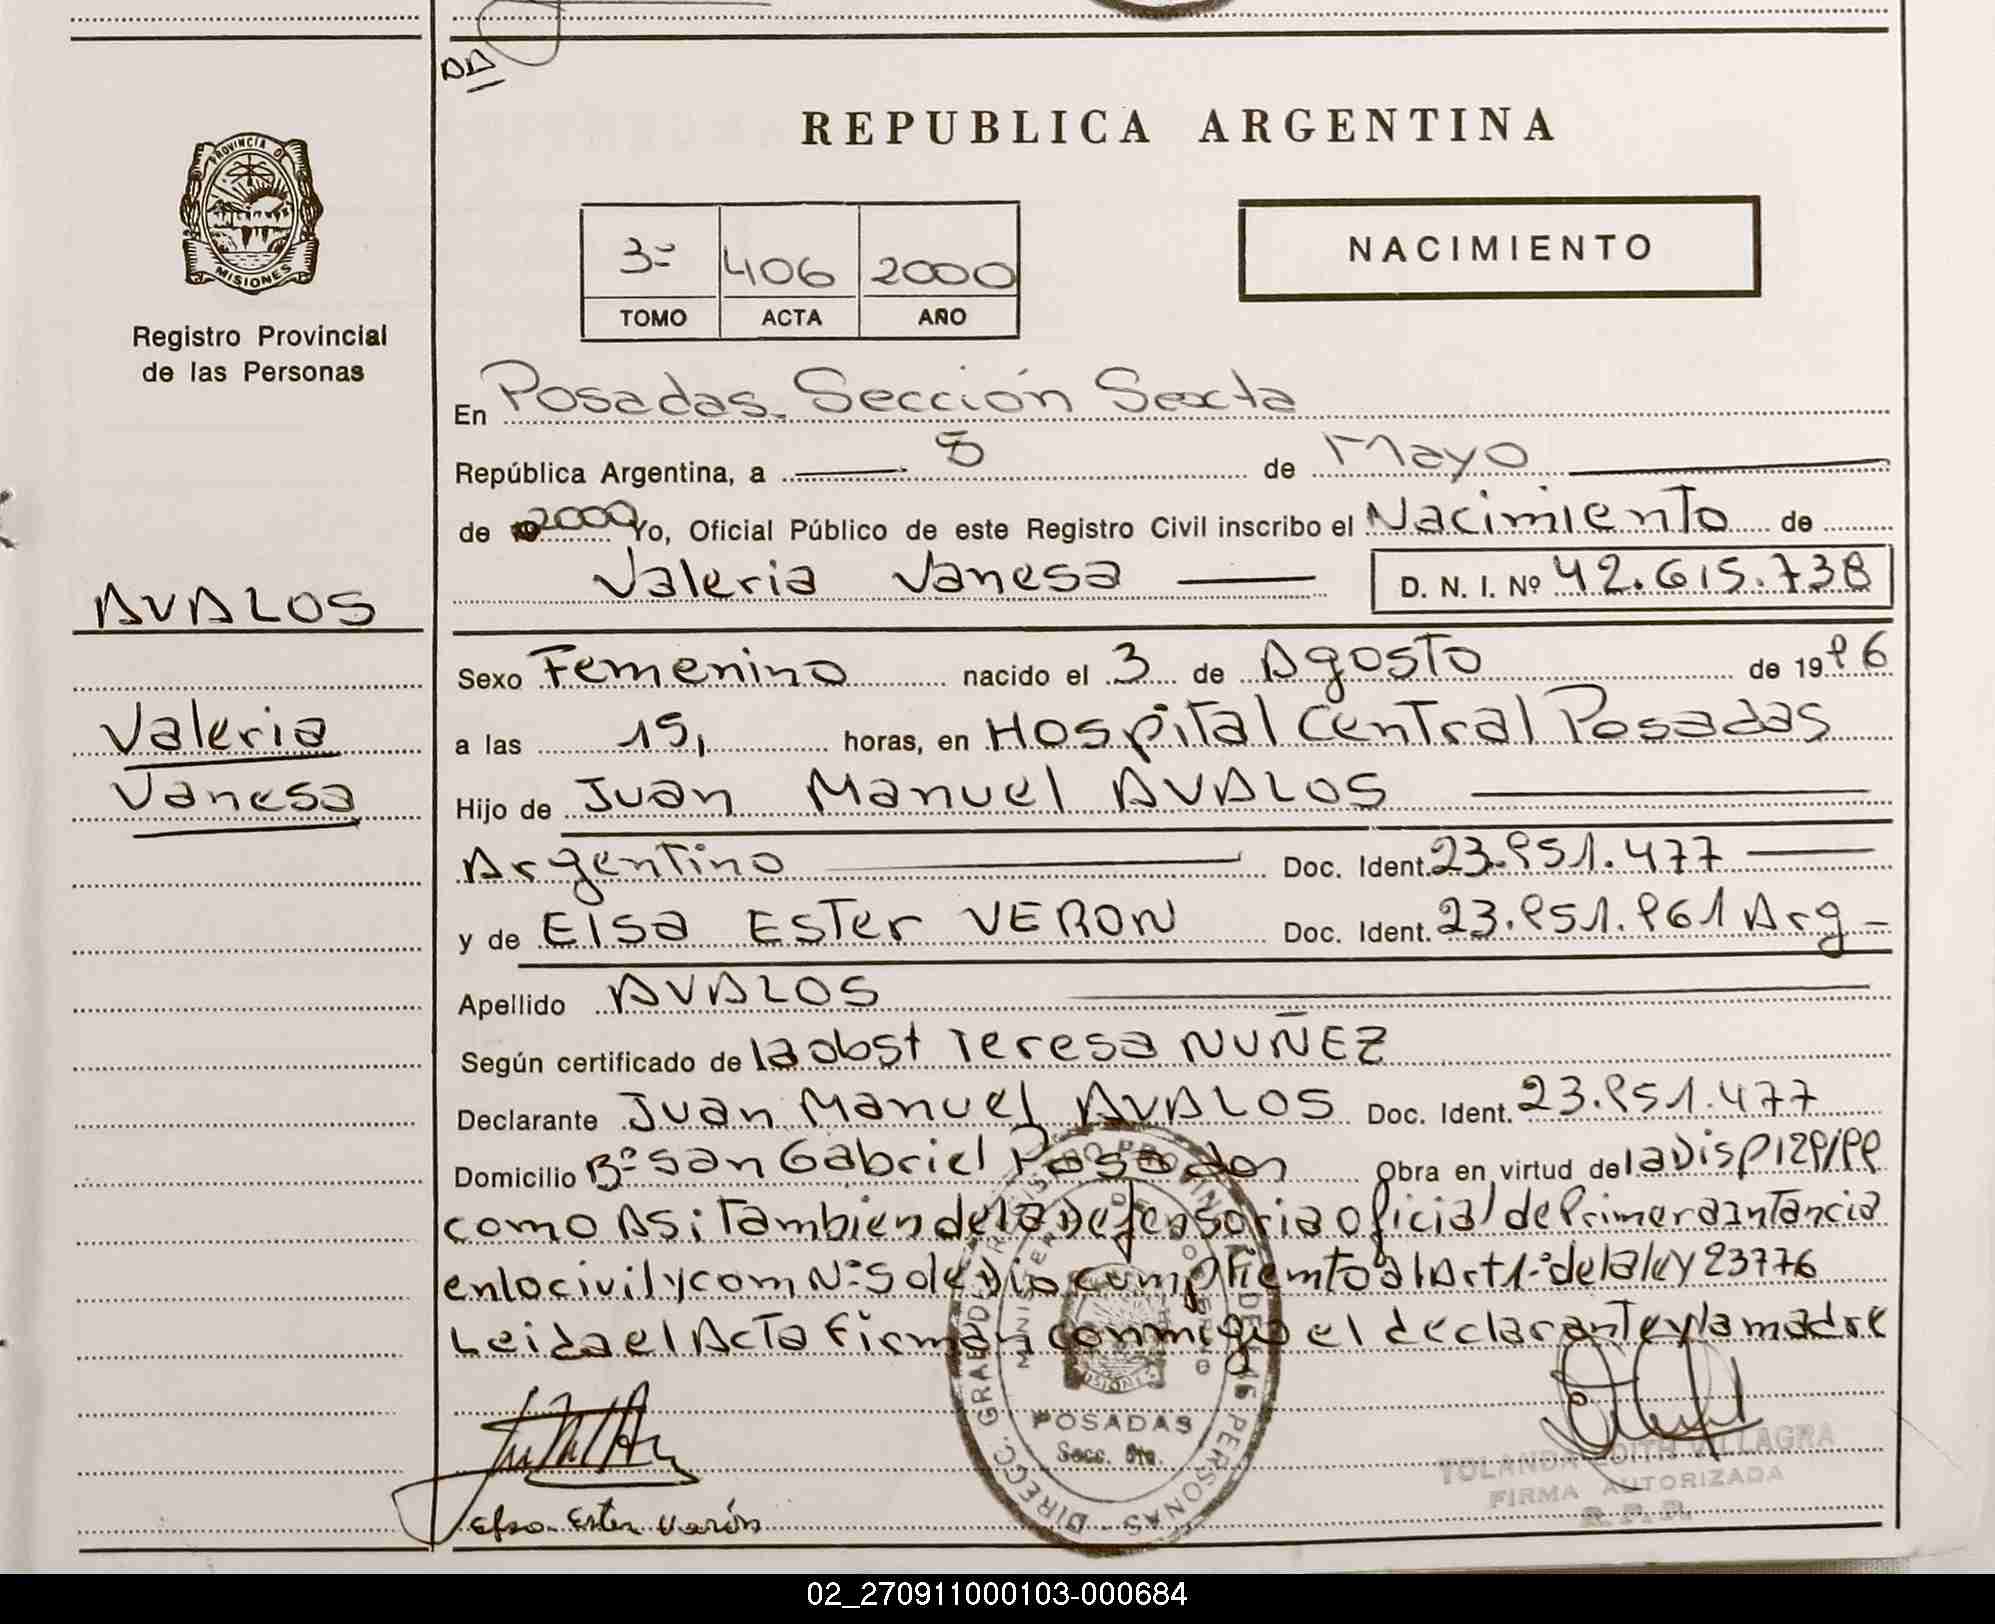 DA
REPUBLICA ARGENTINA
PROVINCIA DE
MISIONES
Registro Provincial
de las Personas
3º 406 2000
TOMO ACTA AÑO
NACIMIENTO
En Posadas. Sección Sexta
República Argentina, a 8 de Mayo
de 2000 Yo, Oficial Público de este Registro Civil inscribo el Nacimiento de
Valeria Vanesa D. N. I. Nº 42.615.738
AVALOS
Sexo Femenino nacido el 3 de Agosto de 1996
Valeria
Vanesa
a las 15, horas, en Hospital Central Posadas
Hijo de Juan Manuel AVALOS
Argentino Doc. Ident. 23.951.477
y de Elsa Ester VERON Doc. Ident. 23.951.961 Arg
Apellido AVALOS
Según certificado de la obst Teresa NUÑEZ
Declarante Juan Manuel AVALOS Doc. Ident. 23.951.477
Domicilio Bº San Gabriel Posadas Obra en virtud de la Disp 129/99
como Asi Tambien de la Defensoria oficial de Primera intancia
en lo civil y com Nº 5 de Dio cumpliemto al Art 1º de la ley 23776
Leida el Acta Firman conmigo el declarante y la madre
POSADAS
Secc. 6ta.
YOLANDA EDITH VILLAGRA
FIRMA AUTORIZADA
R.P.P.
Elsa Ester Verón
02_270911000103-000684